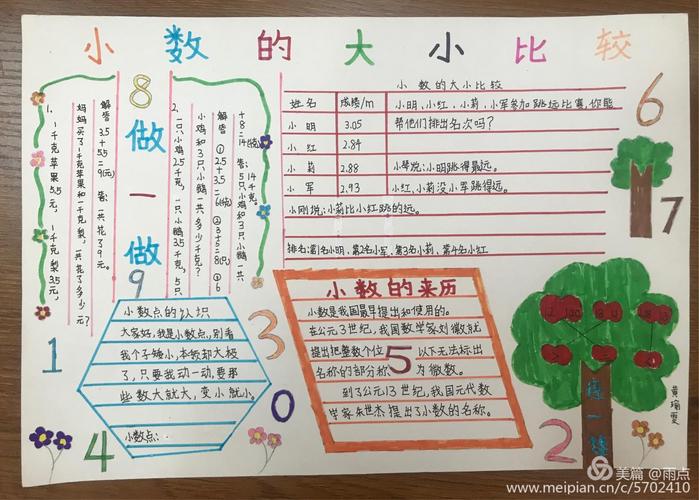 小数的大小比较
1、1千克苹果5.5元，1千克梨3.5元，
妈妈买了1千克苹果和一千克梨，一共花了多少元？
解答 3.5+5.5=9(元) 答：一共花了9元。
8
做一做
9
2、一只小鸡2.5千克，一只小鹅3.5千克，5只
小鸡和3只小鹅一共多少千克？
解答 ① 2.5+3.5=6(千克) ② 3+5=8(只) ③ 6
+8=14(千克) 答：5只小鸡和3只小鹅一共
14千克。
小数的大小比较
姓名 成绩/m 小明、小红、小莉、小军参加跳远比赛，你能
小明 3.05 帮他们排出名次吗？
小红 2.84
小莉 2.88 小琴说：小明跳得最远。
小军 2.93 小红、小莉没小军跳得远。
小刚说：小莉比小红跳的远。
排名：第1名小明、第2名小军、第3名小莉、第4名小红
6
7
小数点的认识
大家好，我是小数点，别看
我个子矮小，本领却大极
了，只要我动一动，要那
些数大就大，变小就小。
小数点：
1
4
3
0
小数的来历
小数是我国最早提出和使用的。
在公元3世纪，我国数学家刘徽就
提出把整数个位5以下无法标出
名称的部分称为微数。
到了公元13世纪，我国元代数
学家朱世杰提出了小数的名称。
2
练一练
黄瑜雯
美篇 @雨点
www.meipian.cn/c/5702410